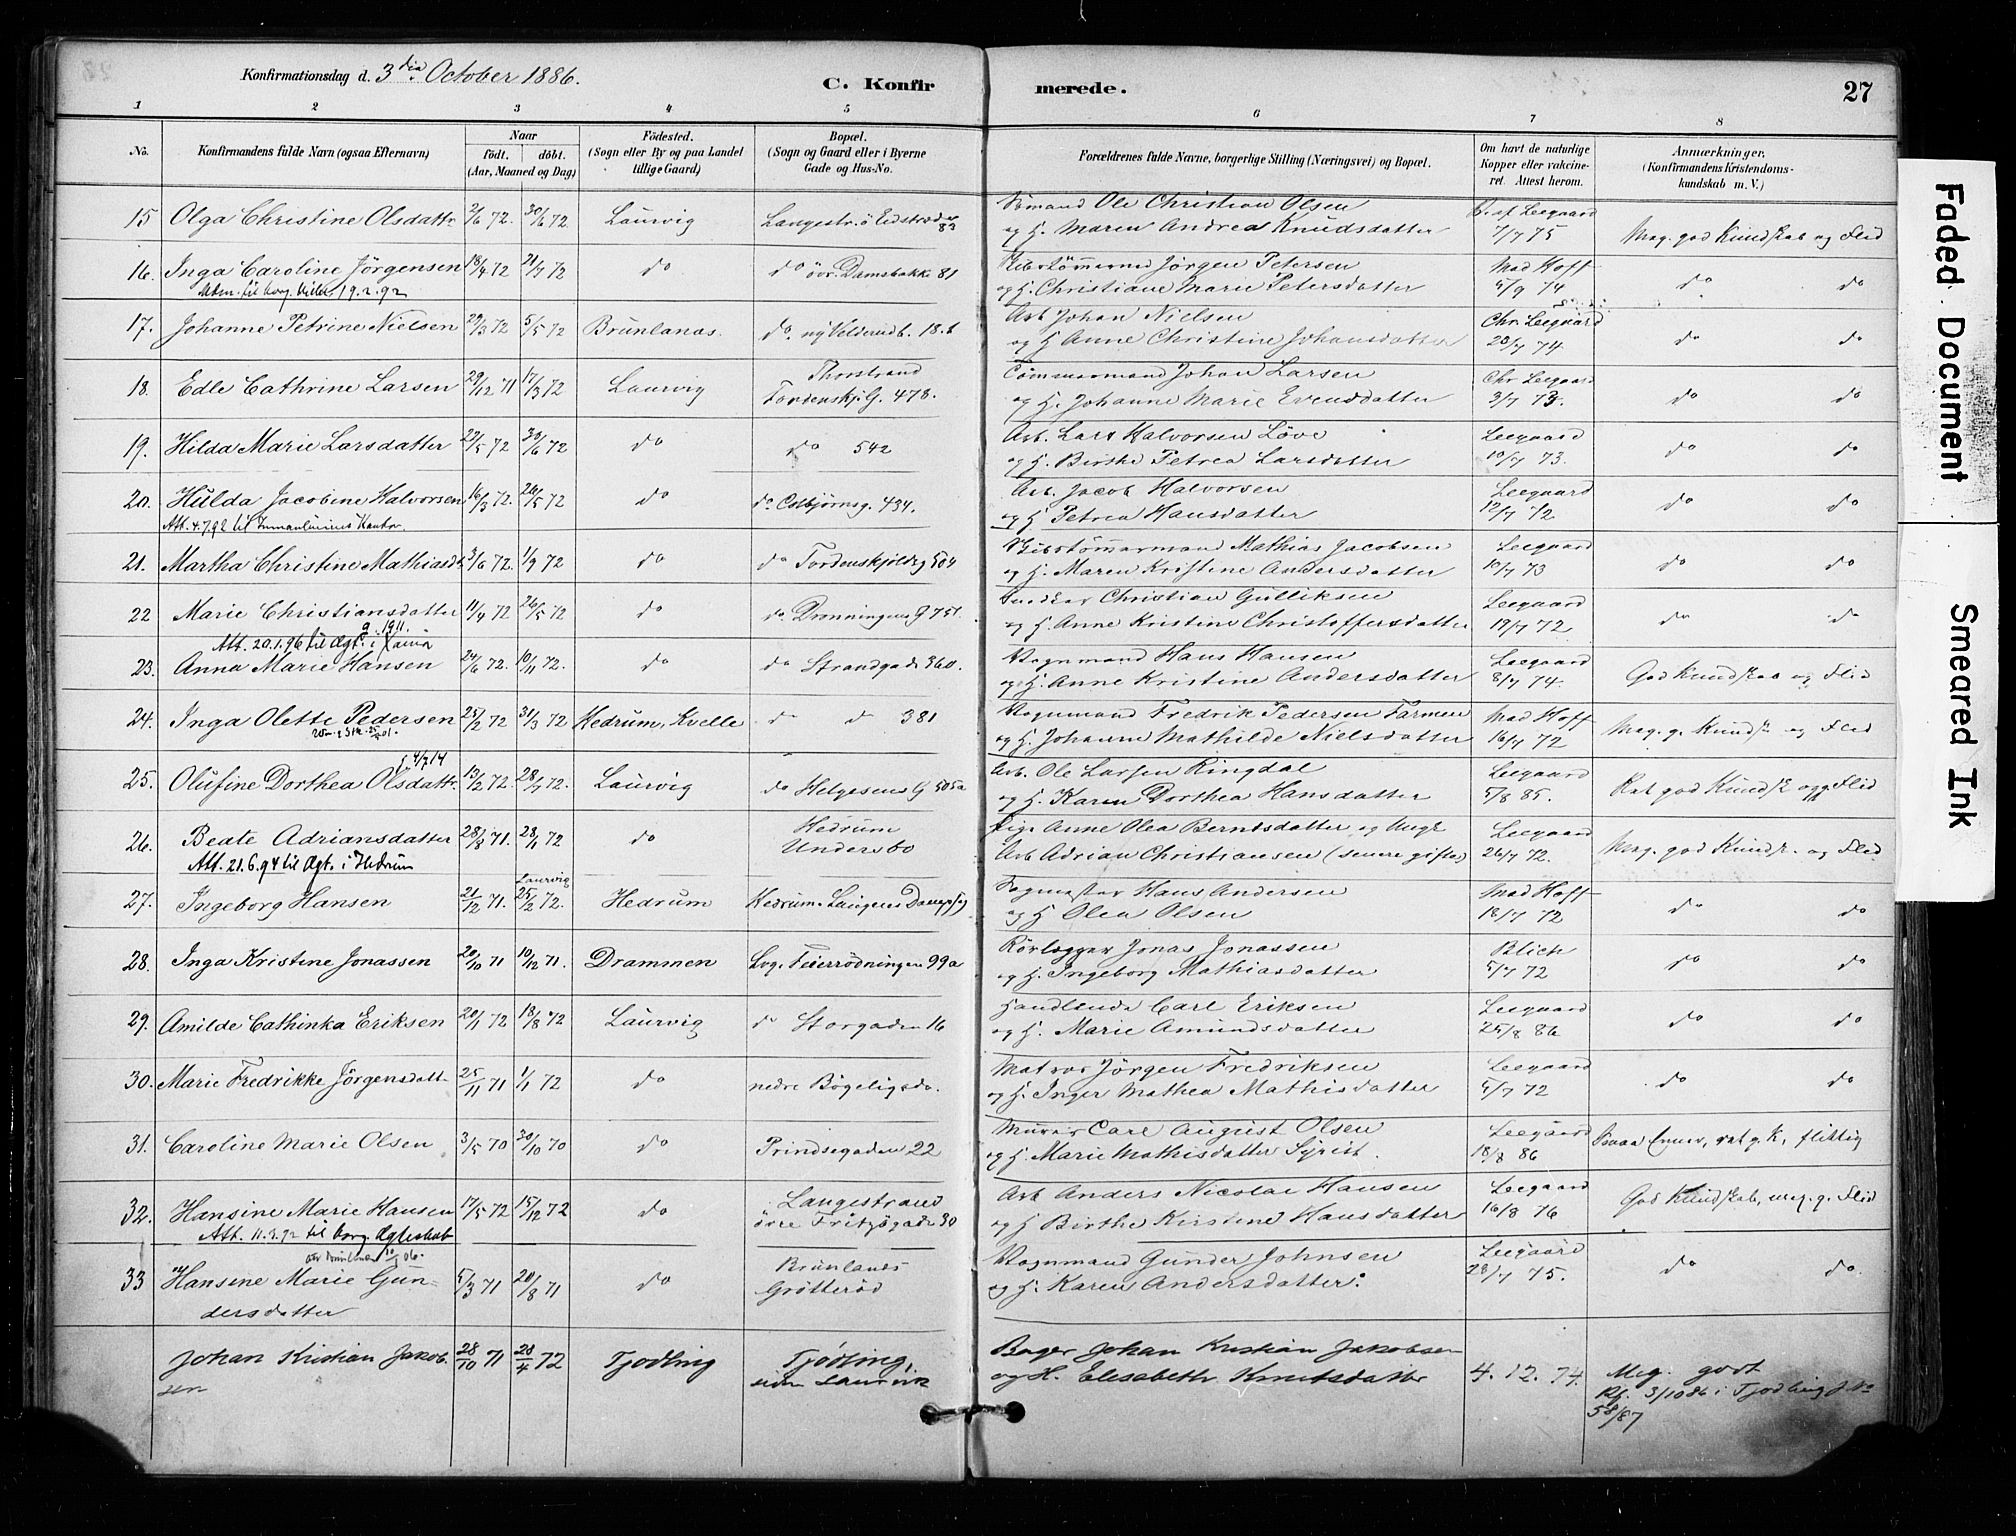 Konfirmationsdag d. 3die October 1886.
C. Konfir
merede.
27
1 2 3 4 5 6 7 8
No.
Konfirmandens fulde Navn (ogsaa Efternavn)
Naar
födt. döbt.
(Aar, Maaned og Dag)
Födested.
(Sogn eller By og paa Landet
tillige Gaard)
Bopæl.
(Sogn og Gaard eller i Byerne
Gade og Hus-No.
Forældrenes fulde Navne, borgerlige Stilling (Næringsvei) og Bopæl.
Om havt de naturlige
Kopper eller vakcine-
ret. Attest herom.
Anmærkninger.
(Konfirmandens Kristendoms-
kundskab m. V.)
15 Olga Christine Olsdattr 2/6 72. 30/6 72 Laurvig Langestr.
Sömand Ole Christian Olsen
og H. Maren Andrea Knudsdatter
Leegaard
7/7 75
Meg. god Kundskab og Flid
16. Inga Caroline Jörgensen 18/4 72 21/7 72 do do övr. Damsbakke 81
19.2.92
Skibstömmermd Jörgen Petersen
og H. Christiane Marie Petersdatter
Mad Hoff
5/9 74
do do
17. Johanne Petrine Nielsen 29/3 72 5/5 72 Brunlanæs. do.
Arb Johan Nielsen
og H Anne Christine Johansdatter
Chr. Leegaard
20/7 74.
do do
18. Edle Cathrine Larsen 29/12 71 17/3 72 Laurvig Thorstrand
Tordenskj. G. 478.
Tömmermand Johan Larsen
og H. Johanne Marie Evensdatter
Chr Leegaard
3/7 73.
do do
19. Hilda Marie Larsdatter 22/5 72 30/6 72 do do 542
Arb. Lars Halvorsen Löve
og H. Birthe Petrea Larsdatter
Leegaard
10/7 73.
do do
20. Hulda Jacobine Halvorsen 16/3 72. 26/5 72 do do Osbjörnsg. 434.
Att. 4.7.92 til
Arb. Jacob Halvorsen
og H Petrea Hansdatter
Leegaard
12/7 72
do do
21. Martha Christine Mathiasd. 3/6 72. 1/9 72 do do Tordenskjoldsg 504
Skibstömmermand Mathias Jacobsen
og H. Maren Kristine Andersdatter
Leegaard
10/7 73
do do
22 Marie Christiansdatter 11/4 72 26/5 72 do do Dronningens G 751.
g. 1911.
Snedker Christian Gulliksen
og H. Anne Kristine Christoffersdatter
Leegaard
19/7 72
do do
Att. 20.1.96 til Ægt. i Xania
23. Anna Marie Hansen 24/6 72. 10/11 72. do do Strandgadn 360.
Vognmand Hans Hansen
og H. Anne Kristine Andersdatter
Leegaard
8/7 74.
God Kundskab og Flid
24. Inga Olette Pedersen 25/2 72 31/3 72 Hedrum, Kvelle do do 381
Vognmand Fredrik Pedersen Farmen
og H. Johanne Mathilde Nielsdatter
Mad Hoff
16/7 72
Meg. g. Kundsk og Flid
25. Olufine Dorthea Olsdattr. 13/2 72. 28/7 72. Laurvig do Helgesens G 505a
Arb. Ole Larsen Ringdal
og H. Karen Dorthea Hansdatter
Leegaard
5/8 85.
Ret god Kundsk og g. Flid
26. Beate Adriansdatter 28/8 71. 28/1 72 do Hedrum
Undersbo
Att. 21.6.94 til Ægt. i Hedrum
Pige Anne Olea Berntsdatter og Ungk
Arb Adrian Christiansen (senere gifte)
Leegaard
26/7 72.
Meg. god Kundsk. og Flid
27. Ingeborg Hansen 21/12 71. Laurvig 25/2 72. Hedrum Hedrum. Laugens Dampsag
Sagmester Hans Andersen
og H Olea Olsen
Mad Hoff
18/7 72
do do
28. Inga Kristine Jonassen 20/10 71 10/12 71. Drammen Lvg. Feierrödningen 99a
Rörlegger Jonas Jonassen
og H. Ingeborg Mathiasdatter
Blich
5/7 72
do do
29. Amilde Cathinka Eriksen 20/1 72 18/8 72 Laurvig do Storgaden 16
Handlende Carl Eriksen
og H. Marie Amundsdatter
Leegaard
25/8 86
do do
30. Marie Fredrikke Jörgensdatt. 25/11 71 1/1 72 do nedre Bögeligade.
Matros Jörgen Fredriksen
og H. Inger Mathea Mathisdatter
Leegaard
5/7 72
do do
31. Caroline Marie Olsen 3/5 70 30/10 70 do Prindsegaden 22
Murer Carl August Olsen
og H. Marie Mathisdatter Syrist.
Leegaard
18/8 86
ret g. K, flittig
32. Hansine Marie Hansen 17/5 72 15/12 72 do Langestrand
övre Fritzögade 30
Att. 11.3.92 til borg. Ægteskab
Arb Anders Nicolai Hansen
og H Birthe Kirstine Hansdatter
Leegaard
16/8 76
God Kundskab, meg. g. Flid
33 Hansine Marie Gun-
dersdatter
5/3 71 20/8 71 do Brunlanes
Grötteröd
Vognmand Gunder Johnsen
og H. Karen Andersdatter.
Leegaard
28/7 75.
do do.
Johan Kristian Jakob-
sen
28/10 71 28/4 72 Tjodling Tjodling,
siden Laurvik
Bager Johan Kristian Jakobsen
og H. Elisabeth Knutsdatter
4.12.74.
Meg. godt
Kf. 3/10 86 i Tjodling J. No
58/87
Faded Document
Smeared Ink